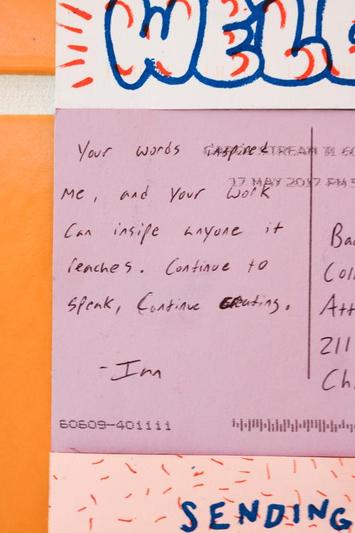 WEL
Your words inspired
me, and your work
Can insipe anyone it
reaches. Continue to
speak, Continue creating.
-Ian
CAROL STREAM IL 60
17 MAY 2017 PM 5
Ba
Col
Att
211
Ch
60609-401111
SENDING